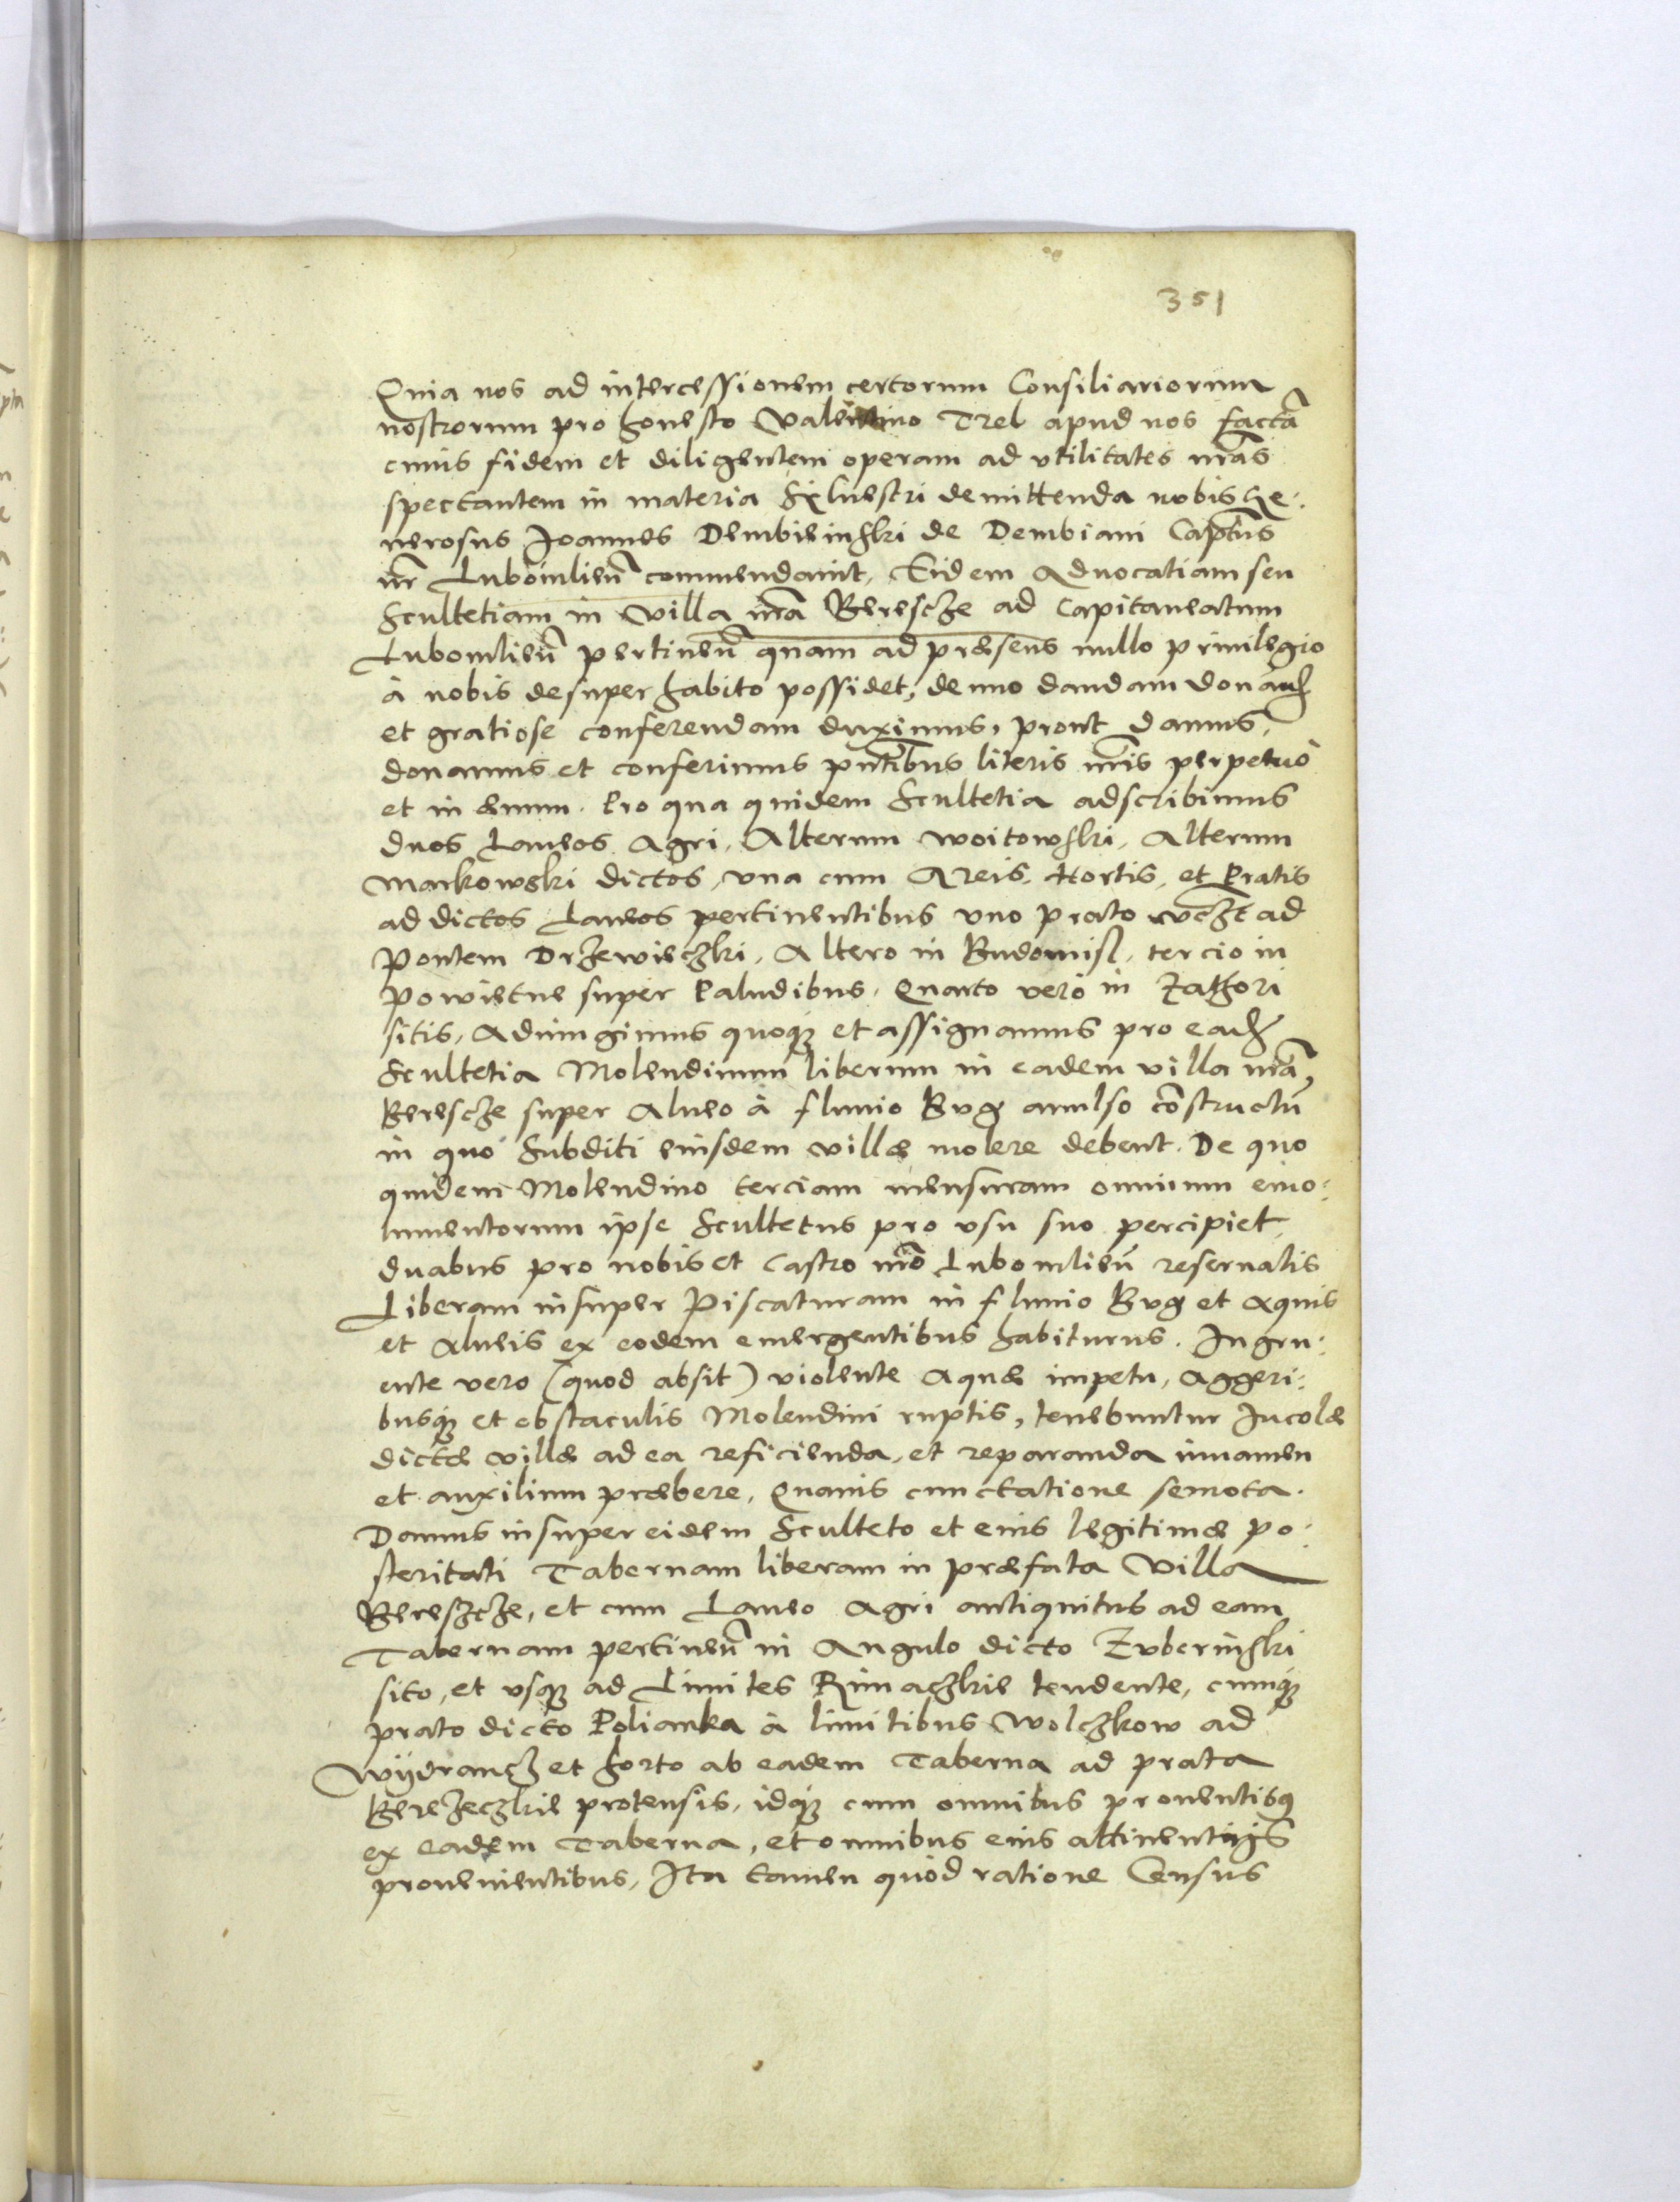 351
Quia nos ad intercessionem certorum Consiliariorum
nostrorum pro honesto Valentino Trel apud nos factã
cuius fidem et diligentem operam ad vtilitates nr̃as
spectantem in materia Syluestri demittenda nobis Ge:
nerosus Joannes Dembieinski de Dembiani Captũs
nr̃ Luboinlieñ commendauit, Eidem Aduocatiam seu
Scultetiam in villa nr̃a Beresczie ad Capitaneatum
Lubomlieñ pertineñ quam ad præsens nullo priuilegio
à nobis desuper habito possidet, denuo dandam donand
et gratiose conferendam duximus, prout damus,
donamus et conferimus pñtibus literis nr̃is perpetuò
et in æuum. Pro qua quidem Scultetia adscribimus
duos Laneos Agri, Alterum Woitowski, Alterum
Markowski dictos, vna cum Areis, Hortis, et Pratis
ad dictos Laneos pertinentibus vno prato vdczt ad
Pontem Drzewieczki, Altero in Budomisl, tercio in
Powietne super Paludibus, Quarto verò in Zathori
sitis, Adiungimus quoqȝ et assignamus pro eadem
Scultetia Molendinum liberum in eadem villa nr̃a,
Beresczie super Alueo à fluuio Bug auulso cõstructũ
in quo Subditi eiusdem villæ molere debent. De quo
quidem Molendino terciam mensuram omnium emo:
lumentorum ipse Scultetus pro vsu suo percipiet,
duabus pro nobis et Castro nr̃o Lubomlieñ reseruatis
Liberam insuper Piscaturam in fluuio Bug et Aquis
et Alueis ex eodem emergentibus habiturus. Ingru:
ente vero (quod absit) violente Aquæ impetu, Aggeri:
busqȝ et obstaculis Molendini ruptis, tenebuntur Incolæ
dictæ villæ ad ea reficienda, et reparanda iuuamen
et auxilium præbere, Quauis cunctatione semota.
Damus insuper eidem Sculteto et eius legitimæ po:
steritati Tabernam liberam in præfata Villa
Bereszcze, et cum Laneo Agri antiquitus ad eam
Tabernam pertineñ in Angulo dicto Zuberinski
sito, et vsqȝ ad Limites Rimaczkie tendente, cumqȝ
prato dicto Polianka à limitibus Wolczkow ad
Wÿdrancz et horto ab eadem Taberna ad prata
Berezeczkie protensis, idqȝ cum omnibus prouentibus
ex eadem Taberna, et omnibus eius attinentijs
prouenientibus, Ita tamen quod ratione Census